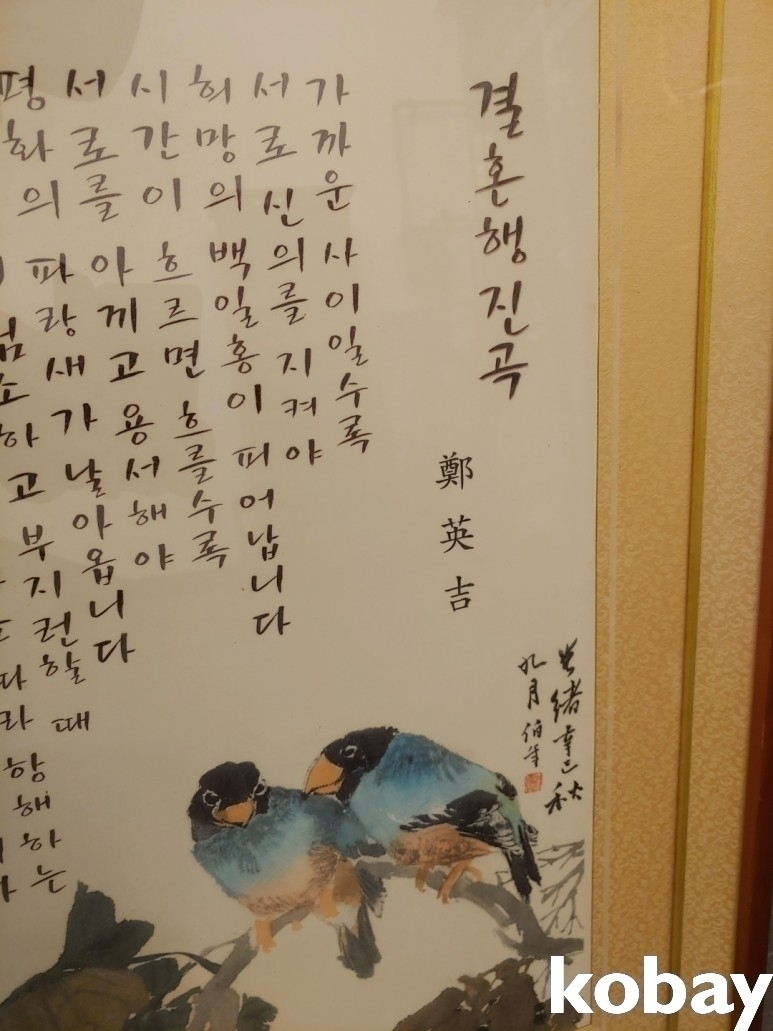 결혼행진곡
鄭英吉
가까운 사이일수록
서로 신의를 지켜야
희망의 백일홍이 피어납니다
시간이 흐르면 흐를수록
서로를 아끼고 용서해야
평화의 파랑새가 날아옵니다
검소하고 부지런할 때
따라 항해하는
光緒辛巳秋
九月 伯年
kobay